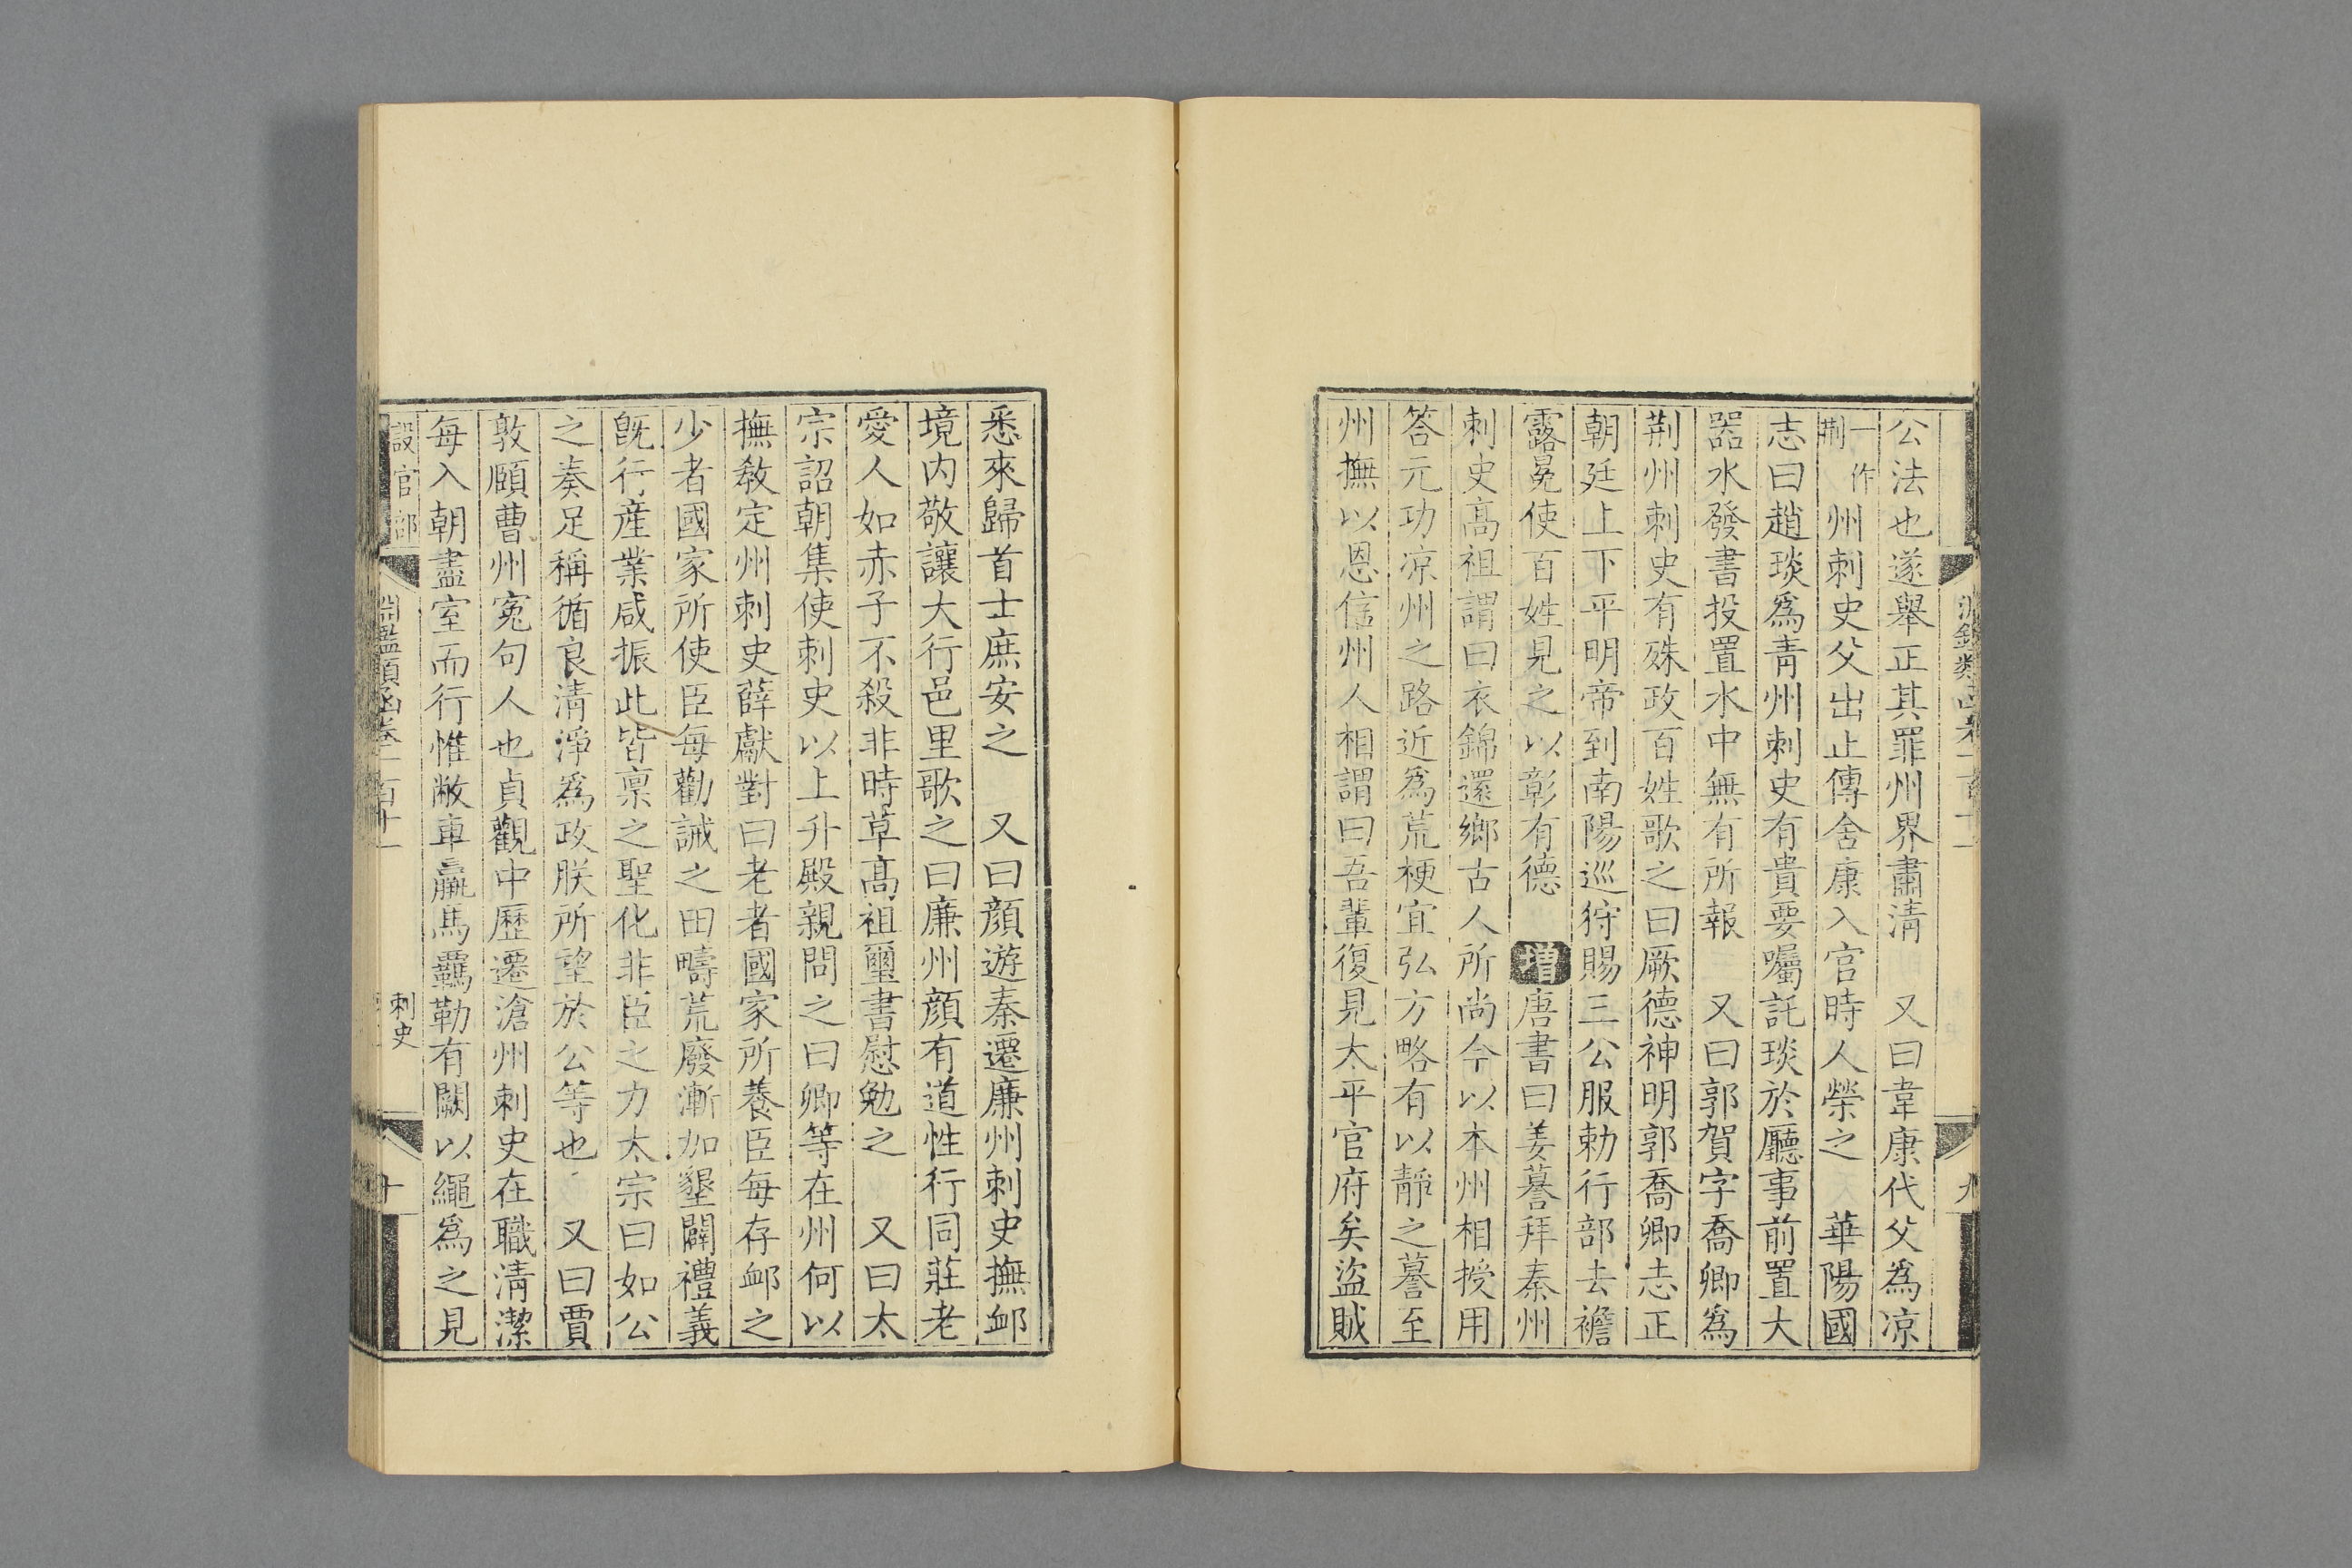 公法也遂舉正其罪州界肅清　又曰韋康代父為凉
一作荆州刺史父出止傳舍康入官時人榮之　華陽國
志曰趙琰爲青州刺史有貴要囑託琰於廳事前置大
器水發書投置水中無有所報　又曰郭賀字喬卿爲
荆州刺史有殊政百姓歌之曰厥德神明郭喬卿忠正
朝廷上下平明帝到南陽巡狩賜三公服勅行部去襜
露冕使百姓見之以彰有德　增唐書曰姜謩拜秦州
刺史高祖謂曰衣錦還鄉古人所尚今以本州相授用
答元功凉州之路近爲荒梗宜弘方略有以靜之謩至
州撫以恩信州人相謂曰吾輩復見太平官府矣盜賊
悉來歸首士庶安之　又曰顔遊秦遷廉州刺史撫邺
境内敬讓大行邑里歌之曰廉州顔有道性行同莊老
愛人如赤子不殺非時草高祖璽書慰勉之　又曰太
宗詔朝集使刺史以上升殿親問之曰卿等在州何以
撫教定州刺史薛獻對曰老者國家所養臣每存邺之
少者國家所使臣每勸誡之田疇荒廢漸加墾闢禮義
旣行産業咸振此皆禀之聖化非臣之力太宗曰如公
之奏足稱循良清淨爲政朕所望於公等也　又曰賈
敦頤曹州寃句人也貞觀中歷遷滄州刺史在職清潔
每入朝盡室而行惟敝車羸馬羈勒有闕以繩爲之見
設官部
淵鑑類函卷一百十一
刺史
十